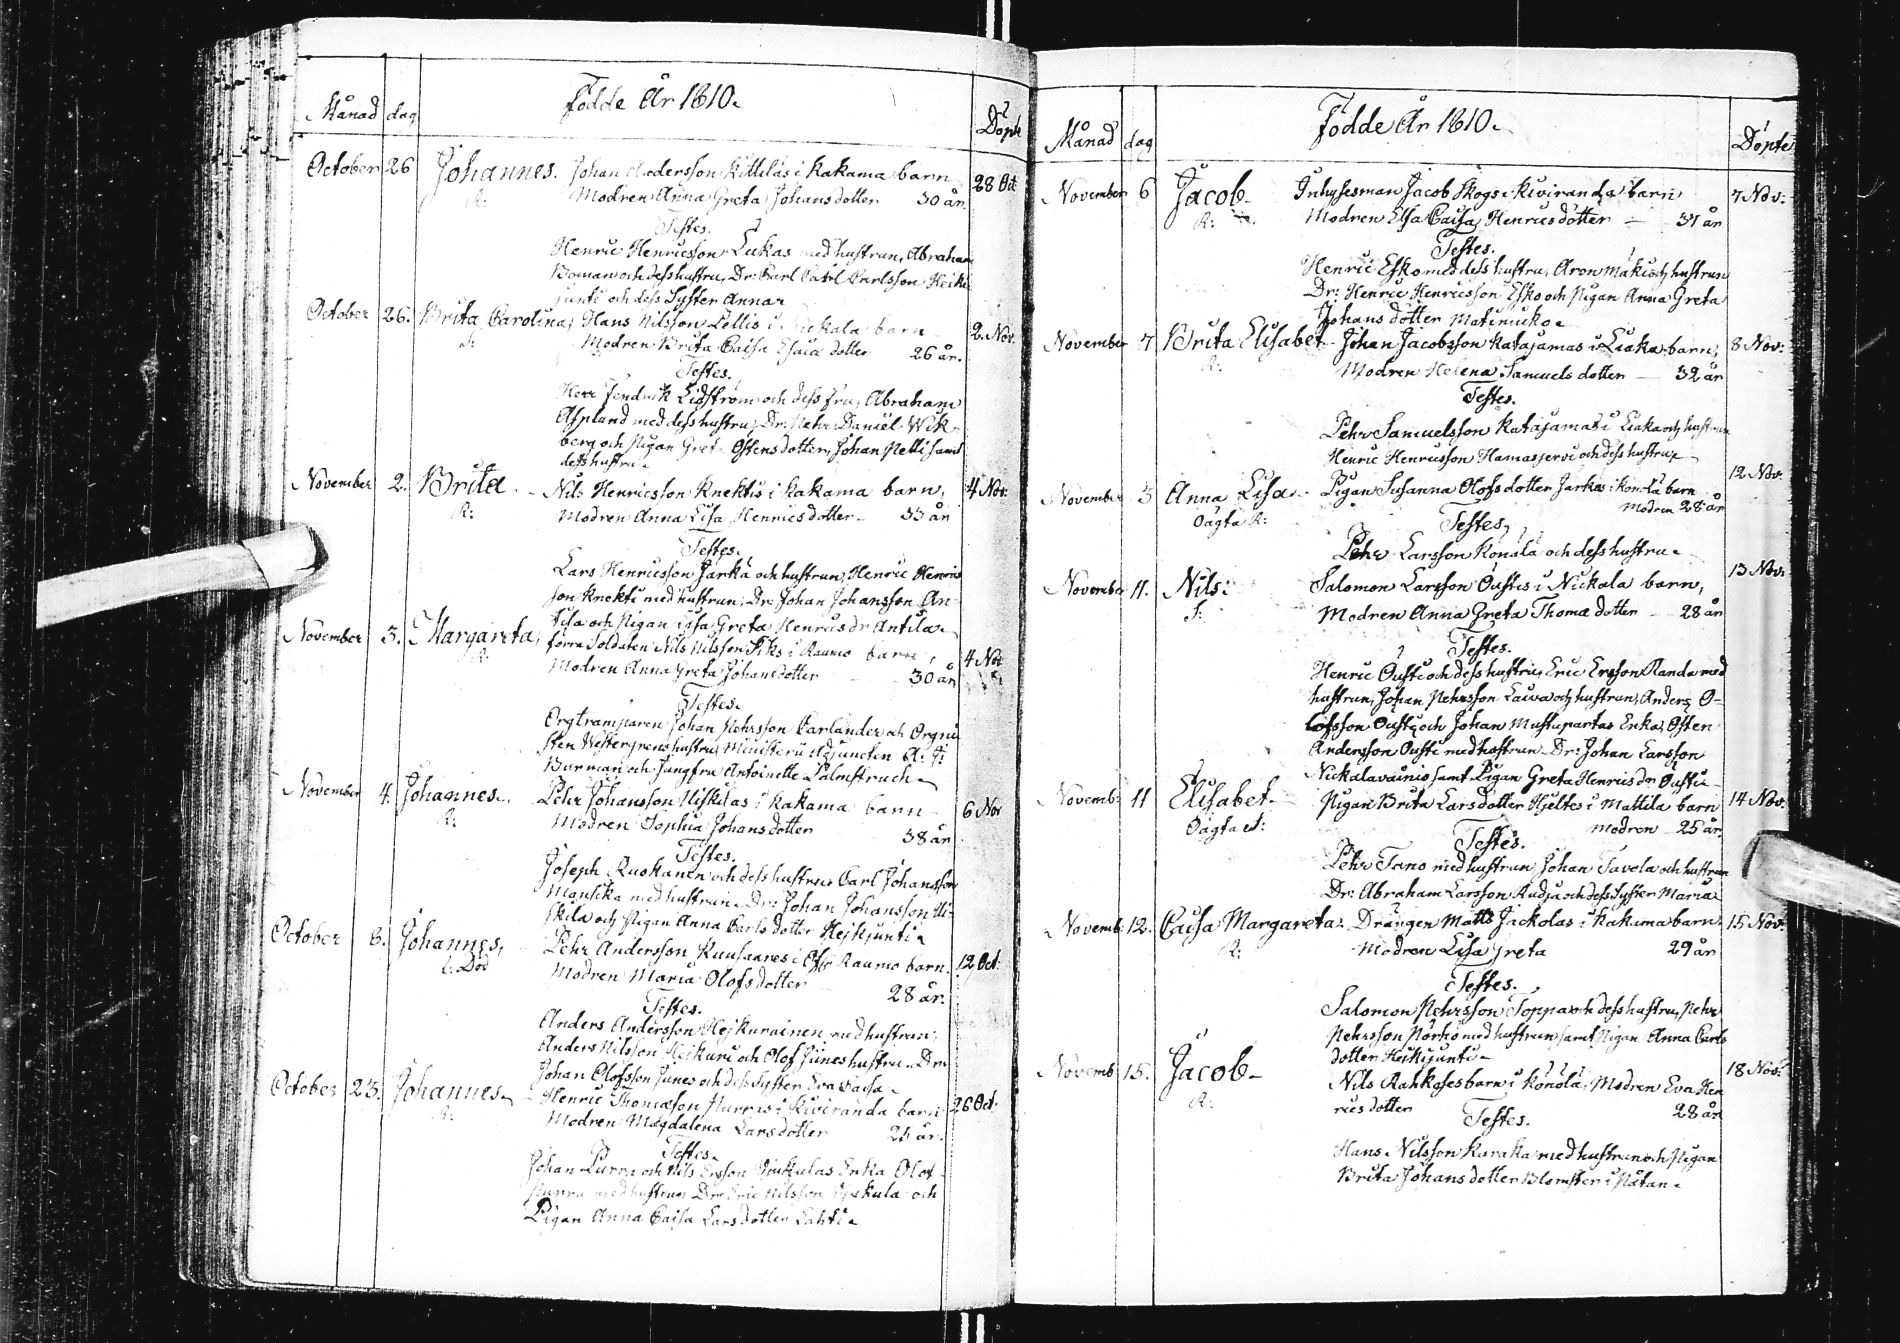 Födde År 1810.
Månad dag Döpte
October 26 Johannes. Johan Andersson Kittiläs i Kakama barn 28 Oct
R: Modren Anna Greta Johans dotter 30 år.
Testes.
Henric Henricsson Lukas med hustrun, Abraham
Boman och dess hustru, Dr: Carl Carlsson Heiki
junti och dess Syster Anna.
October 26. Brita Carolina, Hans Nilsson Lellis i Nickala barn 2. Nov.
Modren Brita Caisa Esaiæ dotter 26 år.
Testes.
Herr Fendrick Lidström och dess fru, Abraham
Asplund med dess hustru, Dr: Pehr Daniel Wik-
berg och Pigan Greta Ostens dotter, Johan Nelli samt
dess hustru.
November 2. Brita Nils Henricsson Knektis i Kakama barn, 4 Nov:
R: Modren Anna Lisa Henrics dotter 33 år
Testes.
Lars Henricsson Jarka och hustrun, Henric Henrics
son Knekti med hustrun, Dr: Johan Johansson An-
tila och Pigan Greta Henrics dr Antila.
November 3. Margareta, förre Soldaten Nils Nilsson i Raumo barn, 4 Nov
R: Modren Anna Greta Johans dotter 30 år
Testes.
Orgtramparen Johan Pehrsson Carlander och Orgni
sten Westergrens hustru, Ministerii Adjuncten A: F:
Burman och Jungfru Antoinette Palmstruch
November 4. Johannes. Pehr Johansson Niskilas i Kakama barn 6 Nov
R: Modren Sophia Johans dotter 38 år
Testes.
Joseph Ruokanen och dess hustru, Carl Johansson
Mansika med hustrun. Dr: Johan Johansson Ni-
skila och Pigan Anna Carls dotter Hejkjunti
October 8. Johannes, Pehr Andersson Kuusaares i Öfr Raumo barn. 12 Oct:
Död Modren Maria Olofs dotter 28 år.
Testes.
Anders Andersson Hejkurainen med hustrun,
Anders Nilsson Heikuri och Olof Junes hustru. Dr:
Johan Olofsson Junes och dess Syster Eva Caisa
October 23. Johannes Henric Thomæson Purras i Kiviranda barn 26 Oct.
R: Modren Magdalena Lars dotter 25 år.
Testes.
Johan Purra och Nils Ersson Enka Olof
Purra med hustrun Dr: Eric Nilsson och
Pigan Anna Caisa Lars dotter Lahti
Födde År 1810.
Månad dag Döpte
November 6 Jacob Inhysesman Jacob Skogs i Kiviranda barn 7 Nov:
R: Modren Elsa Caisa Henrics dotter 37 år
Testes.
Henric Esko med dess hustru, Aron Mäki och hustrun
Dr: Henric Henricsson Esko och Pigan Anna Greta
Johans dotter Matinuiko
November 7 Brita Elisabet Johan Jacobsson Katajamas i Liaka barn, 8 Nov:
R: Modren Helena Samuels dotter 32 år
Testes.
Pehr Samuelsson Katajamas i Liaka och hustrun
Henric Henricsson Hamasjervi och dess hustru
November 3 Anna Lisa Pigan Susanna Olofs dotter Jarkas i Konola barn 12 Nov.
Oägta R: Modren 28 år
Testes,
Pehr Larsson Konola och dess hustru
November 11. Nils: Salomon Larsson Oustis i Nickala barn, 13 Nov:
Modren Anna Greta Thomæ dotter 28 år
Testes.
Henric Ousti och dess hustru, Eric Ersson Randa med
hustrun, Johan Pehrsson Laiva och hustrun, Anders O-
lofsson Ousti och Johan Mustaparras Enka, Osten
Andersson Ousti med hustrun Dr: Johan Larsson
Nickalavainio samt Pigan Greta Henrics dr Ousti
Novemb: 11 Elisabet Pigan Brita Lars dotter Hjeltes i Mattila barn 14 Nov:
Oägta Modren 25 år
Testes.
Pehr Tano med hustrun, Johan Tavela och hustrun
Dr: Abraham Larsson Kudja och dess Syster Maria
Novemb: 12. Caisa Margareta. Drängen Matts Jackolas i Kakama barn 15 Nov:
R: Modren Lisa Greta 29 år
Testes.
Salomon Pehrsson Toppa och dess hustru, Pehr
Pehrsson Pörkö med hustrun samt Pigan Anna Carls
dotter Heikijunti
Novemb: 15. Jacob Nils Rahkoses barn i Konola, Modren Eva Hen 18 Nov:
R: rics dotter 28 år
Testes.
Hans Nilsson Kuraka med hustrun och Pigan
Brita Johans dotter Blomster i Nätan